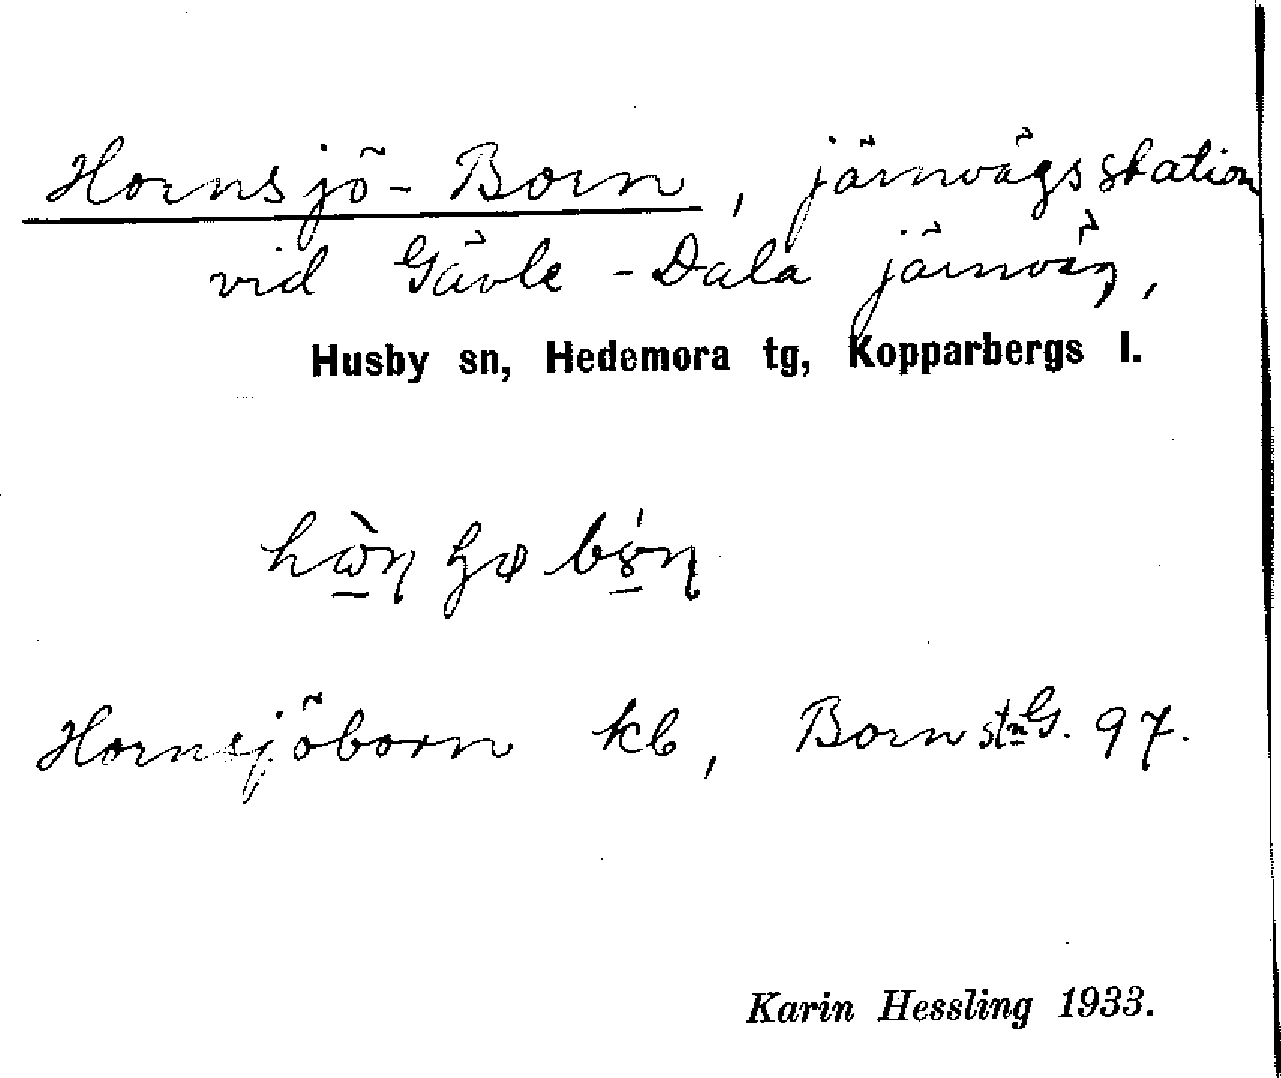 Hornsjö-Born, järnvägsstation
vid Gävle-Dala järnväg,
Husby sn, Hedemora tg, Kopparbergs l.
Hornsjöborn kb, Born stn G. 97.
Karin Hessling 1933.